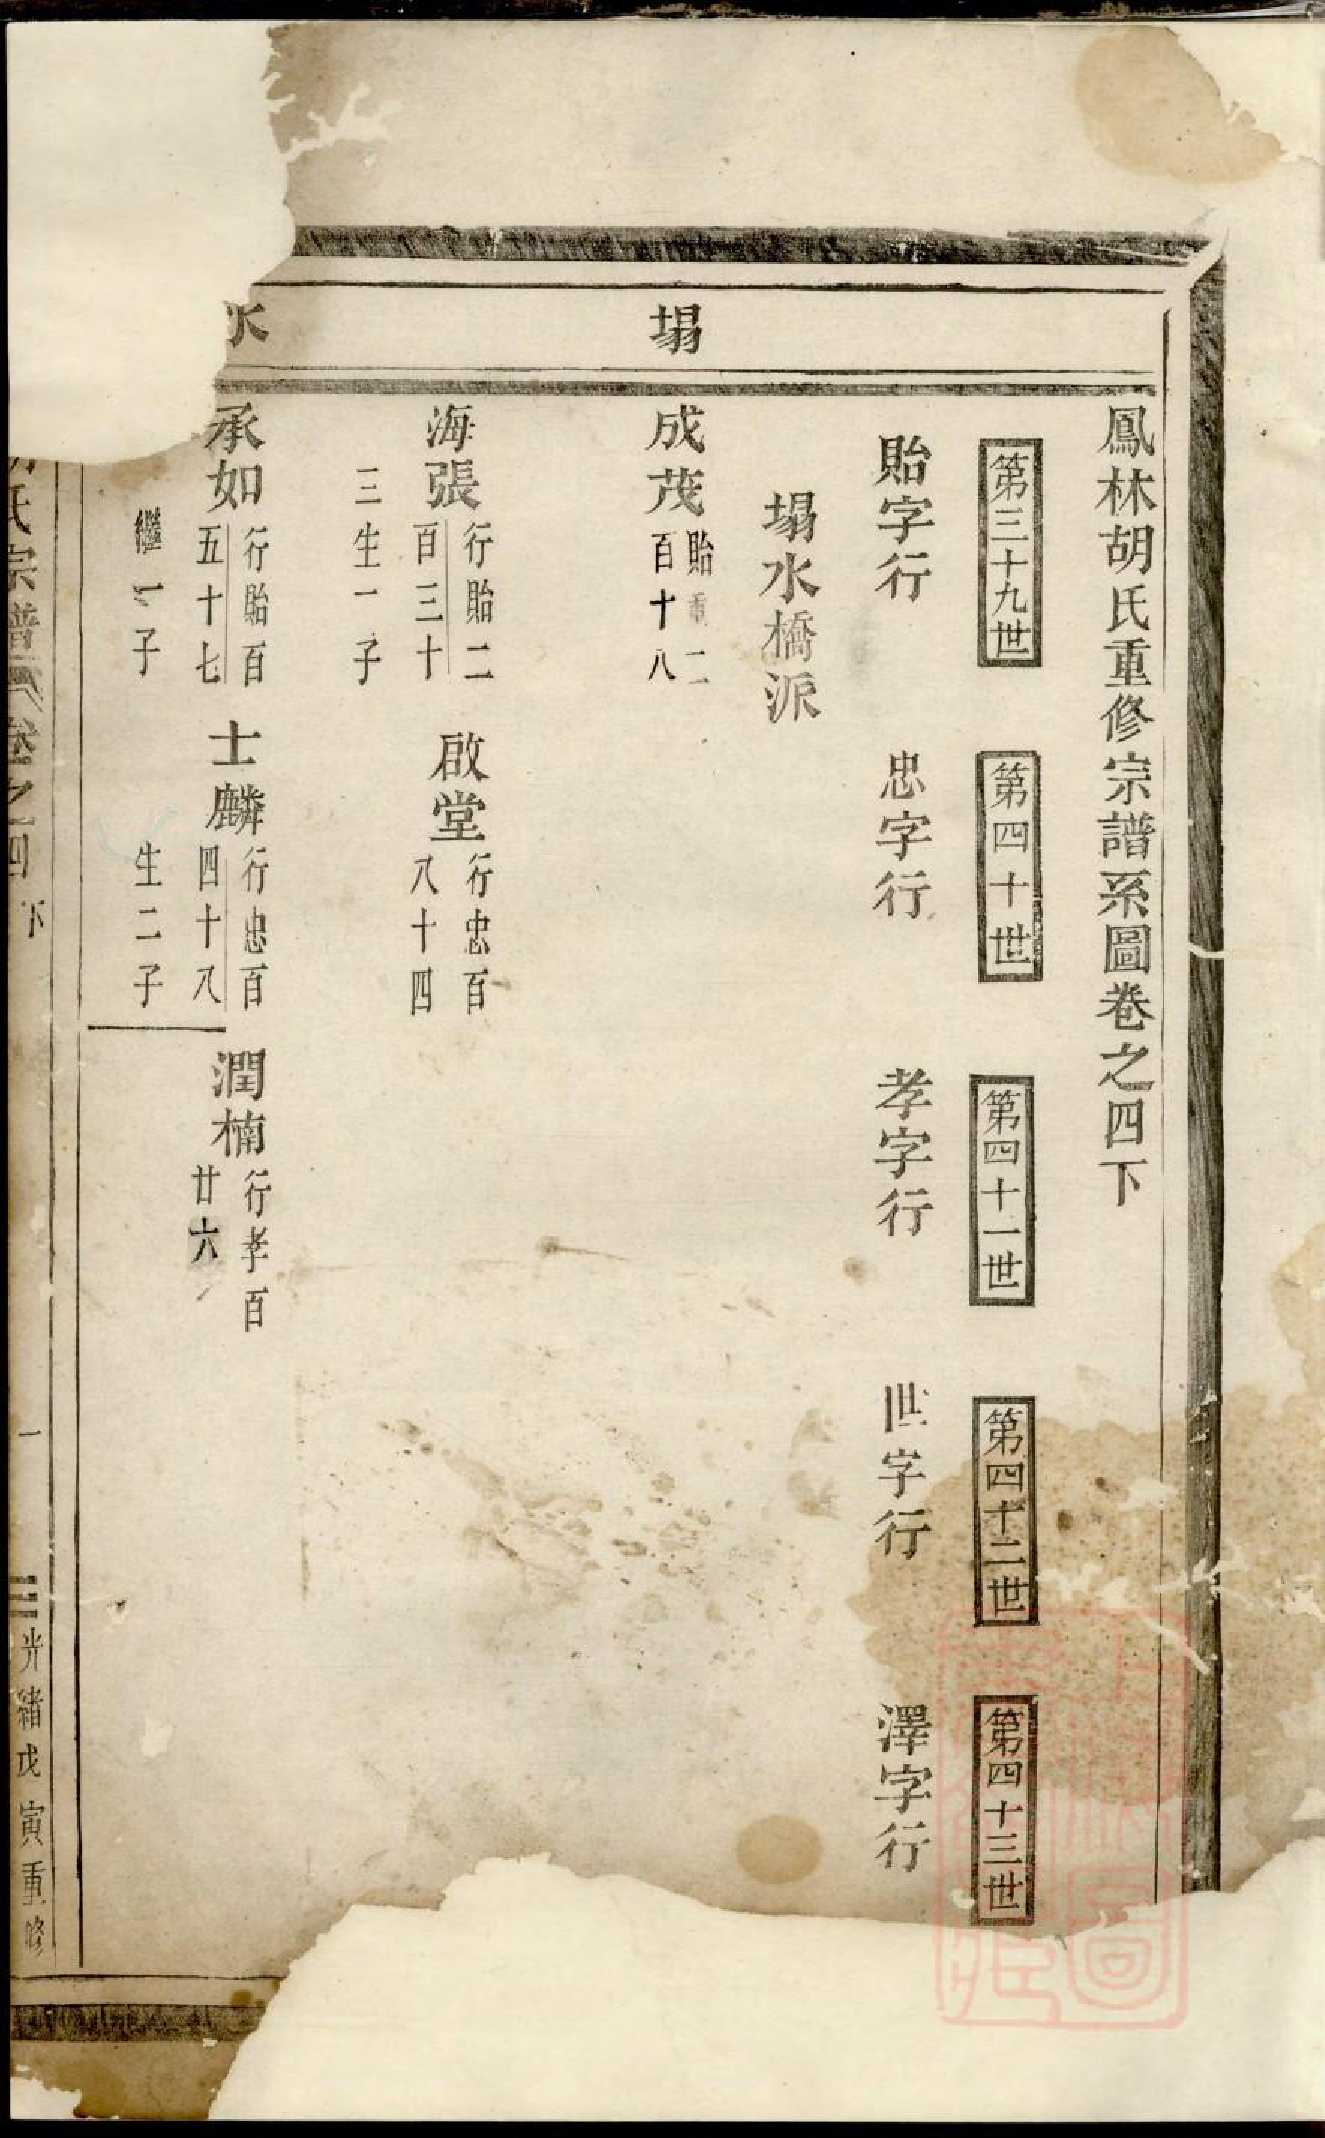 鳳林胡氏重修宗譜系圖卷之四下
第三十九世
第四十世
第四十一世
第四十二世
第四十三世
貽字行
忠字行
孝字行
世字行
澤字行
塌水橋派
塌
成茂
貽重二
百十八
海張
行貽二
百三十
三生一子
啟堂
行忠百
八十四
水
承如
行貽百
五十七
繼一子
士麟
行忠百
四十八
生二子
潤楠
行孝百
廿六
氏宗譜
卷之四下
一
光緒戊寅重修